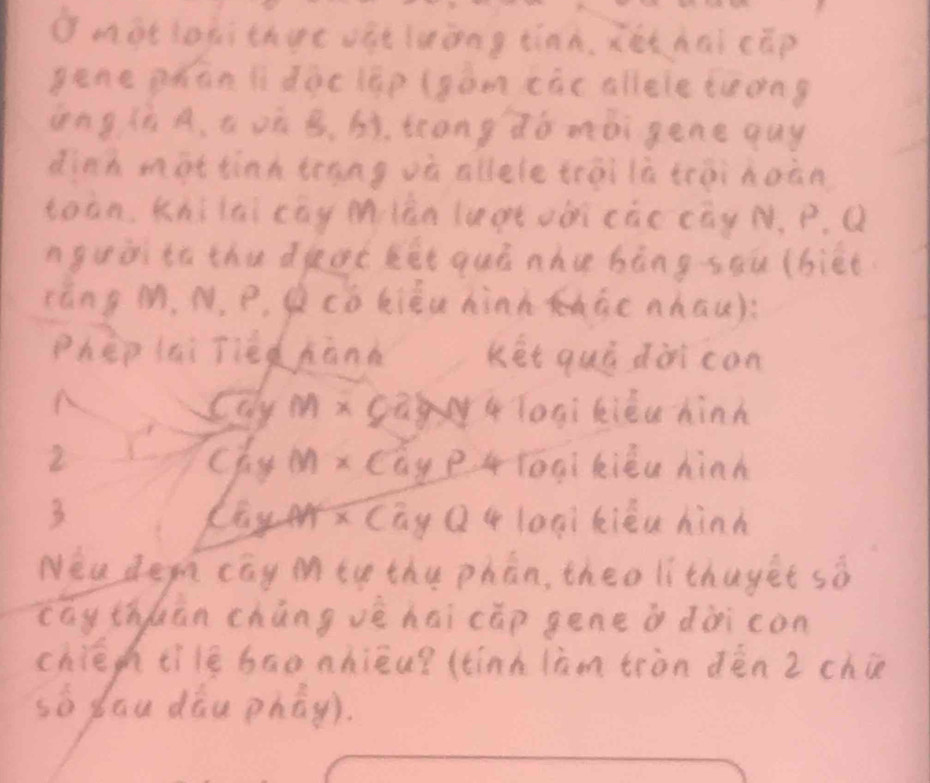 Ở một loài thực vật lưỡng tính, xét hai cặp
gene phân li độc lập (gồm các allele tương
ứng là A, a và B, b), trong đó mỗi gene quy
định một tính trạng và allele trội là trội hoàn
toàn. Khi lai cây M lần lượt với các cây N, P, Q
người ta thu được kết quả như bảng sau (biết
rằng M, N, P, Q có kiểu hình khác nhau):
Phép lai Tiến hành Kết quả đời con
1 Cây M × Cây N 4 loại kiểu hình
2 Cây M × Cây P 4 loại kiểu hình
3 Cây M × Cây Q 4 loại kiểu hình
Nếu đem cây M tự thụ phấn, theo lí thuyết số
cây thuần chủng về hai cặp gene ở đời con
chiếm tỉ lệ bao nhiêu? (tính làm tròn đến 2 chữ
số sau dấu phẩy).